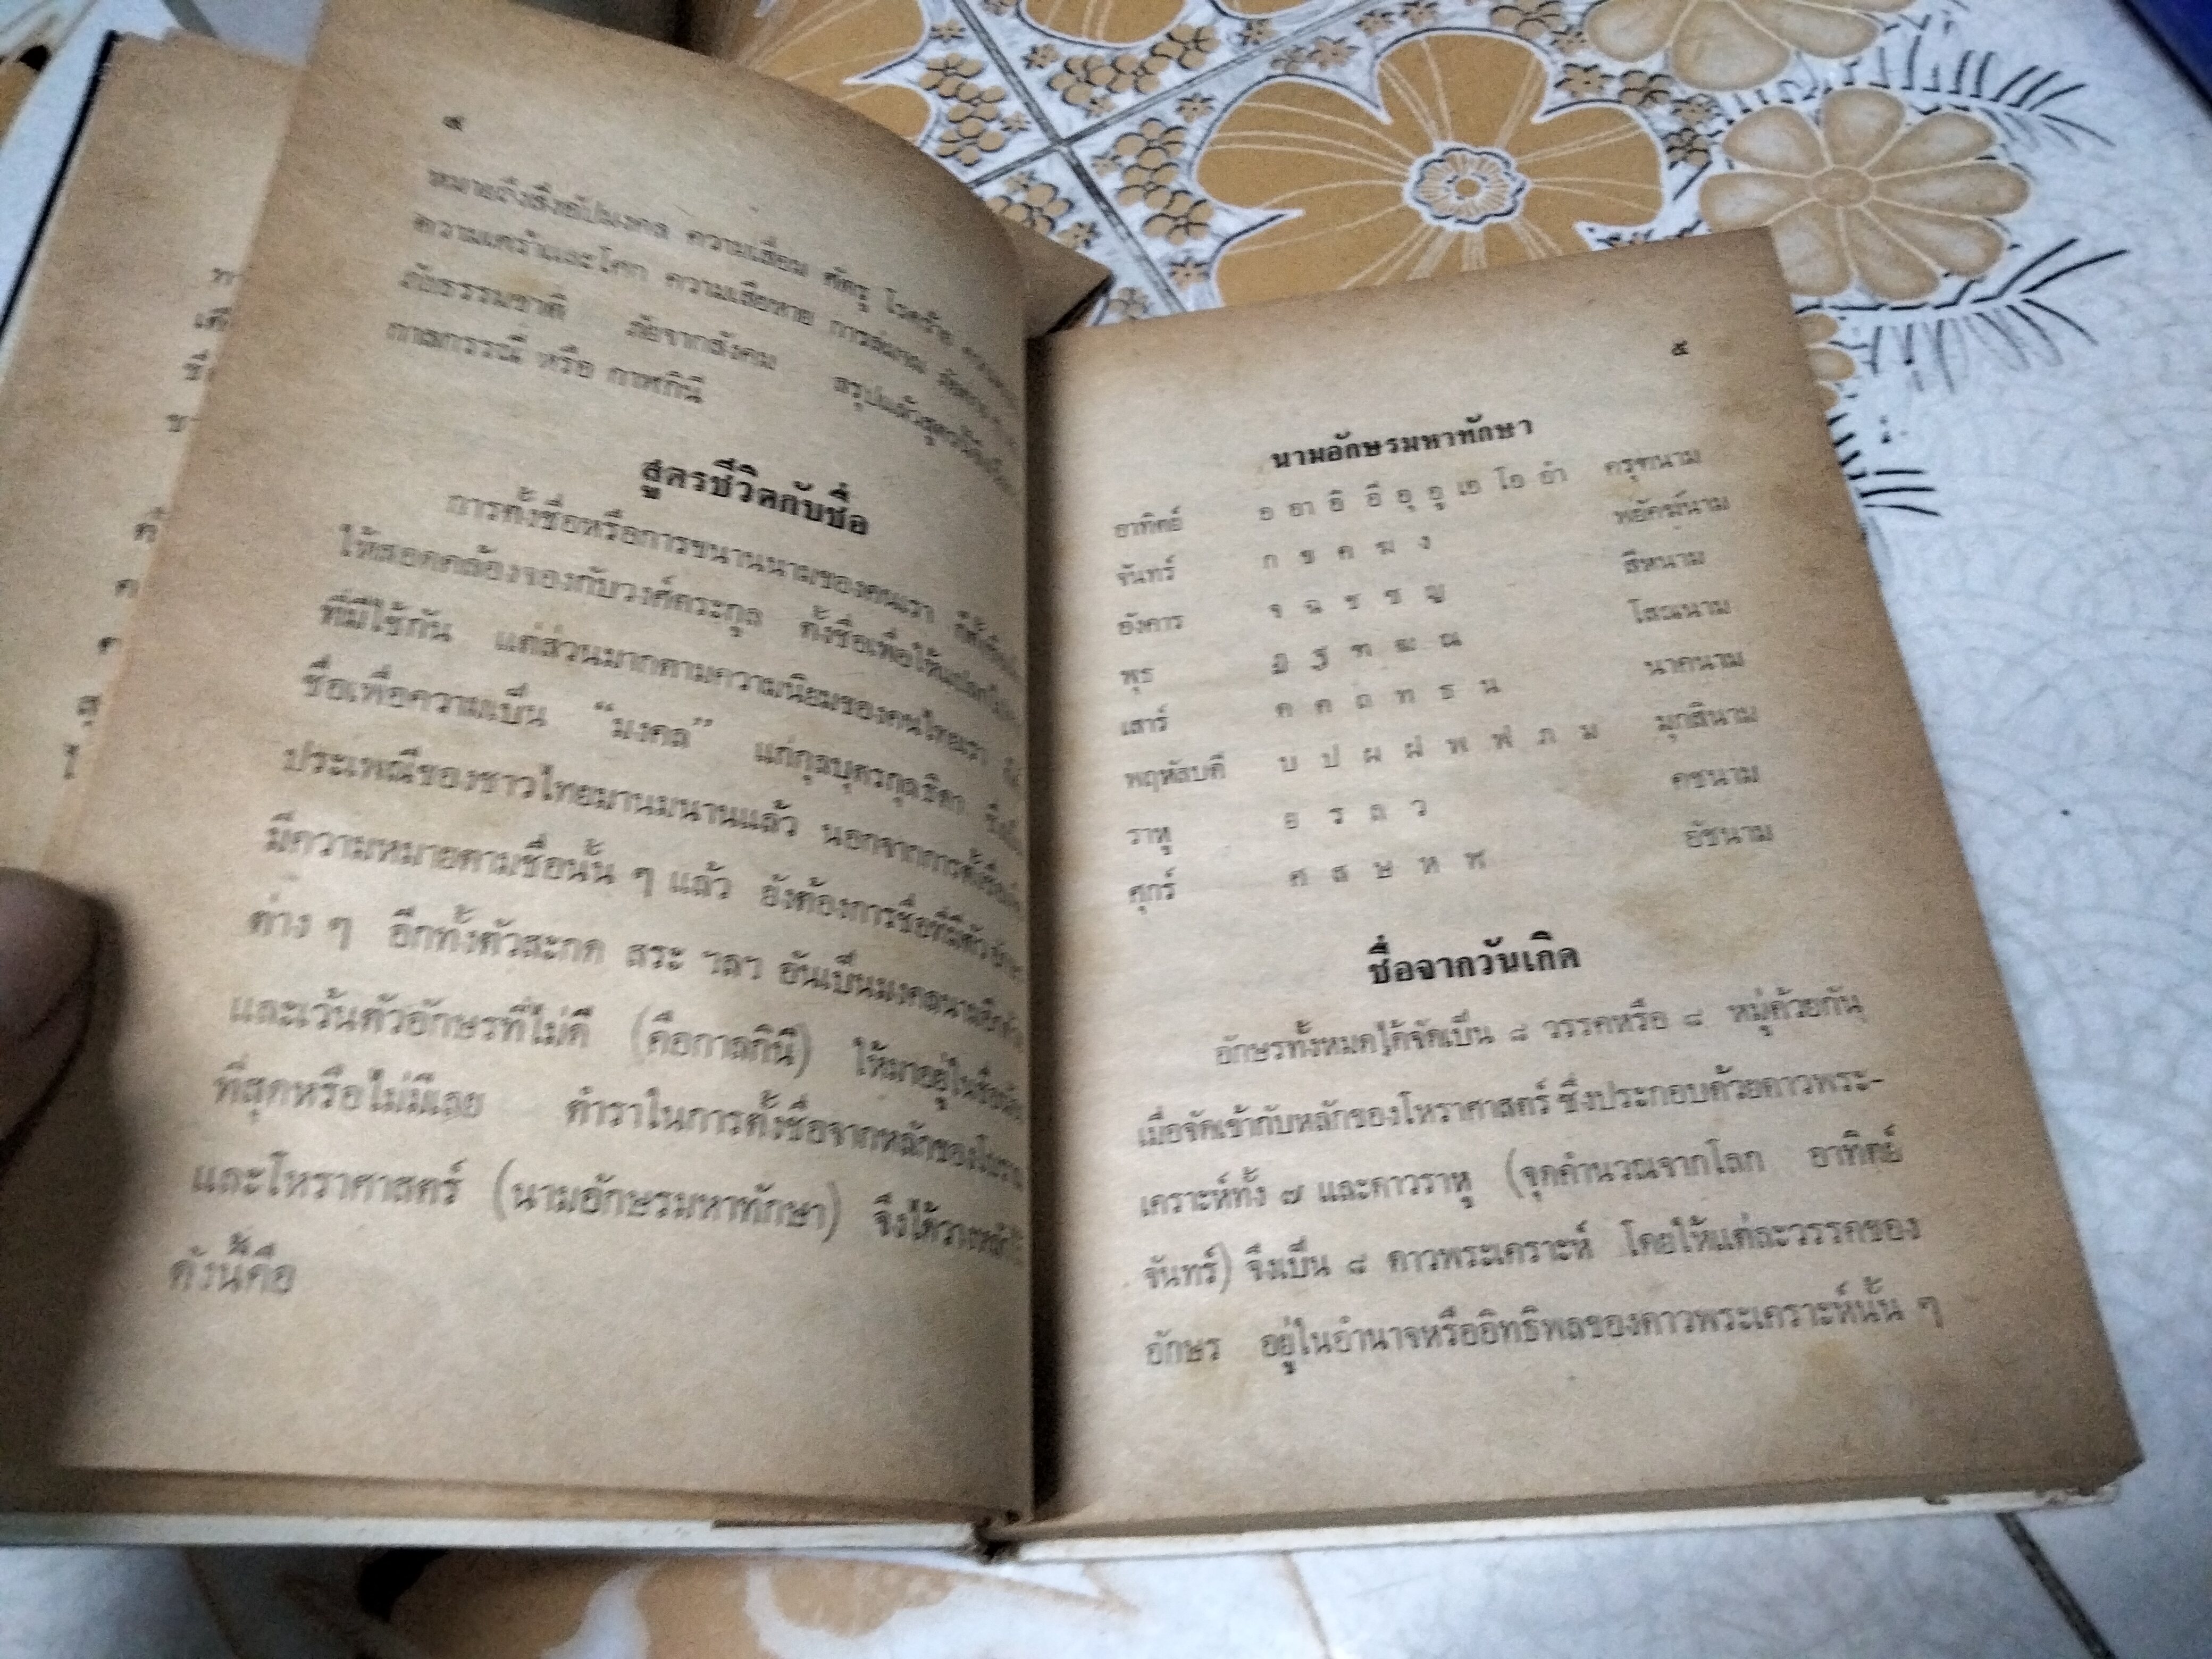 ๔
ความเสื่อม ศัตรู โรคร้าย
ความเศร้าและโศก ความเสียหาย
ภัยธรรมชาติ ภัยจากสังคม สรุปแล้วสูตรนี้
กาลกรรณี หรือ กาฬกินี
สูตรชีวิตกับชื่อ
การตั้งชื่อหรือการขนานนามของคนเรา
ให้สอดคล้องจองกับวงศ์ตระกูล ตั้งชื่อเพื่อให้
ที่มีใช้กัน แต่ส่วนมากตามความนิยมของคนไทยเรา
ชื่อเพื่อความเป็น “มงคล” แก่กุลบุตรกุลธิดา
ประเพณีของชาวไทยมานมนานแล้ว นอกจากการตั้งชื่อ
มีความหมายตามชื่อนั้น ๆ แล้ว ยังต้องการชื่อที่มีตัว
ต่าง ๆ อีกทั้งตัวสะกด สระ ฯลฯ อันเป็นมงคลนาม
และเว้นตัวอักษรที่ไม่ดี (คือกาลกินี) ให้มาอยู่ในชื่อ
ที่สุดหรือไม่มีเลย ตำราในการตั้งชื่อจากหลักของ
และโหราศาสตร์ (นามอักษรมหาทักษา) จึงได้วาง
ดังนี้คือ
๕
นามอักษรมหาทักษา
อาทิตย์ อ อา อิ อี อุ อู เอ โอ อำ ครุฑนาม
จันทร์ ก ข ค ฆ ง พยัคฆ์นาม
อังคาร จ ฉ ช ซ ญ สีหนาม
พุธ ฎ ฐ ฑ ฒ ณ โสณนาม
เสาร์ ด ต ถ ท ธ น นาคนาม
พฤหัสบดี บ ป ผ ฝ พ ฟ ภ ม มุกสินาม
ราหู ย ร ล ว คชนาม
ศุกร์ ศ ส ษ ห ฬ อัชนาม
ชื่อจากวันเกิด
อักษรทั้งหมดได้จัดเป็น ๘ วรรคหรือ ๘ หมู่ด้วยกัน
เมื่อจัดเข้ากับหลักของโหราศาสตร์ ซึ่งประกอบด้วยดาวพระ-
เคราะห์ทั้ง ๗ และดาวราหู (จุดคำนวณจากโลก อาทิตย์
จันทร์) จึงเป็น ๘ ดาวพระเคราะห์ โดยให้แต่ละวรรคของ
อักษร อยู่ในอำนาจหรืออิทธิพลของดาวพระเคราะห์นั้น ๆ